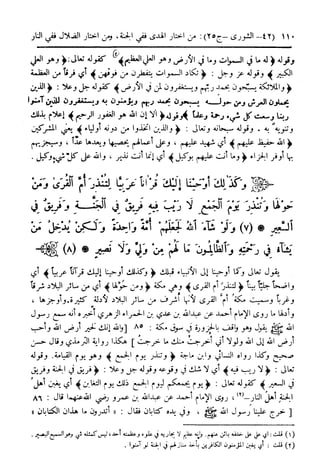 ١١٠ (٤٢- الشورى -ج٢٥): من اختار الهدى ففي الجنة، ومن اختار الضلال ففي النار
وقوله ﴿له ما في السموات وما في الأرض وهو العلي العظيم﴾(١) كقوله تعالى: ﴿وهو العلي
الكبير﴾ وقوله عز وجل: ﴿تكاد السموات يتفطرن من فوقهن﴾ أي فرقاً من العظمة
﴿والملائكة يسبّحون بحمد ربهم ويستغفرون لمن في الأرض﴾ كقوله جل وعلا: ﴿الذين
يحملون العرش ومن حوله يسبحون بحمد ربهم ويؤمنون به ويستغفرون للذين آمنوا
ربنا وسعت كل شيء رحمة وعلماً﴾ وقوله ﴿ألا إن الله هو الغفور الرحيم﴾ إعلام بذلك
وتنويه به. وقوله سبحانه وتعالى: ﴿والذين اتخذوا من دونه أولياء﴾ يعني المشركين
﴿الله حفيظ عليهم﴾ أي شهيد عليهم، وعلى أعمالهم يحصيها ويعدها عدّاً، وسيجزيهم
بها أوفر الجزاء ﴿وما أنت عليهم بوكيل﴾ أي إنما أنت نذير، والله على كل شيء وكيل.
وَكَذَٰلِكَ أَوْحَيْنَا إِلَيْكَ قُرْآنًا عَرَبِيًّا لِتُنْذِرَ أُمَّ الْقُرَىٰ وَمَنْ
حَوْلَهَا وَتُنْذِرَ يَوْمَ الْجَمْعِ لَا رَيْبَ فِيهِ فَرِيقٌ فِي الْجَنَّةِ وَفَرِيقٌ فِي
السَّعِيرِ * (٧) وَلَوْ شَاءَ اللَّهُ لَجَعَلَهُمْ أُمَّةً وَاحِدَةً وَلَٰكِنْ يُدْخِلُ مَنْ
يَشَاءُ فِي رَحْمَتِهِ وَالظَّالِمُونَ مَا لَهُمْ مِنْ وَلِيٍّ وَلَا نَصِيرٍ * (٨)
يقول تعالى وكما أوحينا إلى الأنبياء قبلك ﴿وكذلك أوحينا إليك قرآناً عربياً﴾ أي
واضحاً جلياً بيناً ﴿لتنذر أم القرى﴾ وهي مكة ﴿ومن حولها﴾ أي من سائر البلاد شرقاً
وغرباً وسميت مكة أم القرى لأنها أشرف من سائر البلاد لأدلة كثيرة، وأوجزها،
وأدلها ما روى الإمام أحمد عن عبدالله بن عدي بن الحمراء الزهري أخبره أنه سمع رسول
الله ﷺ يقول وهو واقف بالحزورة في سوق مكة: ٨٥ [والله إنك لخير أرض الله وأحب
أرض الله إلى الله ولولا أني أخرجت منك ما خرجت] هكذا رواية الترمذي وقال حسن
صحيح وكذا رواه النسائي وابن ماجة ﴿وتنذر يوم الجمع﴾ وهو يوم القيامة. وقوله
تعالى: ﴿لا ريب فيه﴾ أي لا شك في وقوعه وقوله جل وعلا: ﴿فريق في الجنة وفريق
في السعير﴾ كقوله تعالى: ﴿يوم يجمعكم ليوم الجمع ذلك يوم التغابن﴾ أي يغبن أهل
النار(٢)، روى الإمام أحمد عن عبدالله بن عمرو رضي الله عنهما قال: ٨٦
[خرج علينا رسول الله ﷺ وفي يده كتابان فقال: «أتدرون ما هذان الكتابان،
(١) قلت: أي علي على خلقه بائن منهم. وإنه عظيم لا يجاريه في علوه وعظمته أحد، ليس كمثله شيء وهو السميع البصير.
(٢) قلت: أي يغبن المؤمنون الكافرين بأخذ منازلهم في الجنة لو آمنوا.